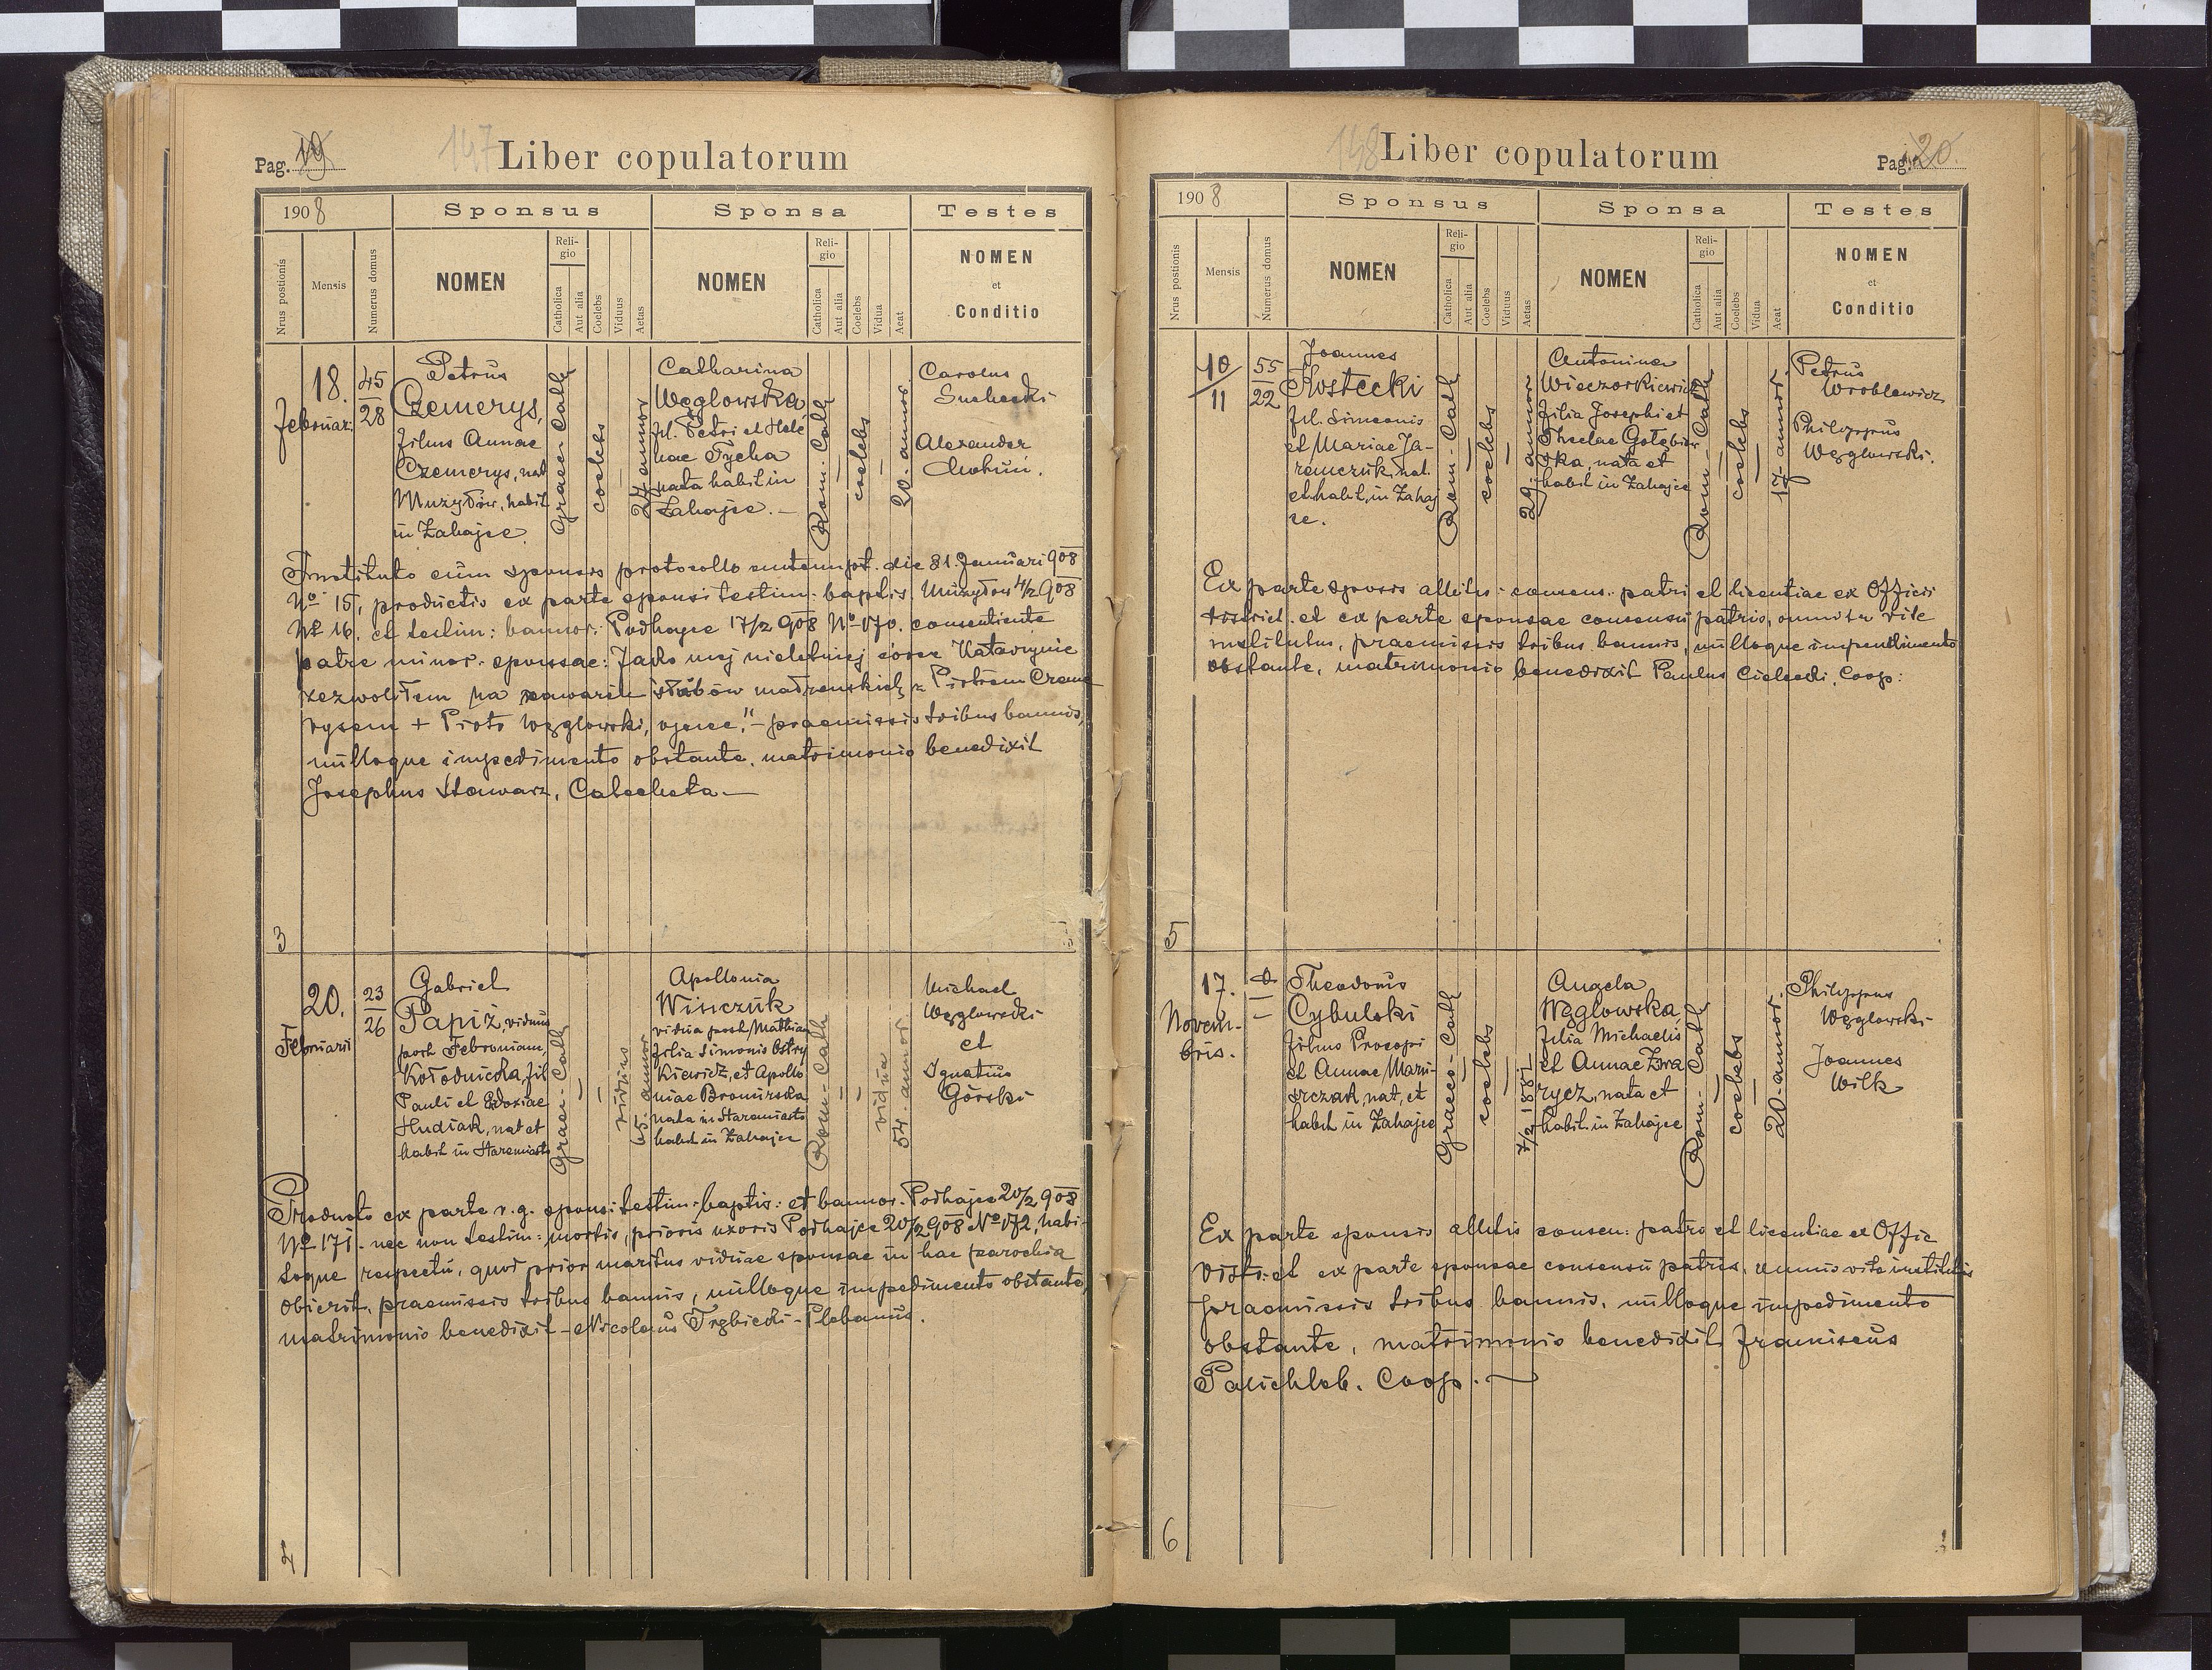 Pag. 19
147
Liber copulatorum
1908
Sponsus
Sponsa
Testes
Nrus postionis
Mensis
Numerus domus
NOMEN
Reli-
gio
Catholica
Aut alia
Coelebs
Viduus
Aetas
NOMEN
Reli-
gio
Catholica
Aut alia
Coelebs
Vidua
Aeat
NOMEN
et
Conditio
3
18.
Februar.
45
28
Petrus
Czemerys,
filius Annae
Czemerys, nat
Muzyłów, habit
in Zahajce.
Graec-Cath
coelebs
24 annor
Catharina
Węglowska
fil. Petri et Hele
nae Tycha
nata habit in
Zahajce. —
Rom-Cath
coelebs
20. annor.
Carolus
Suchecki
Alexander
Instituto cum sponsis protocollo die 31. Januari 908
No 15, productis ex parte sponsi testim: baptis. Muzyłów 4/2 908
No 16. et testim: bannor: Podhajce 17/2 908 No 170. consentiente
patre minor. sponsae: Jako mej nieletniej córce Katarzynie
zezwoliłem na zawarcie ślubów małżenskich z Piotrem Czeme
rysem + Piotr Węglowski, ojciec." — praemissis tribus bannis,
nulloque impedimento obstante, matrimonio benedixit
Josephus Stawarz, Catecheta —
4
20.
Februarii
23
26
Gabriel
Papiż, viduus
post Febroniam,
Kołodnicka, fil
Pauli et Edoxiae
Hudiak, nat et
habit in Staremiasto
Graec-Cath
viduus
65. annor
Apollonia
Winczuk
vidua post Mathiam
filia Simonis Ostry
kiewicz, et Apollo
niae Bronirska
nata in Staremiasto
habit in Zahajce
Rom-Cath
vidua
54. annor
Michael
Węglowski
et
Ignatius
Górski
Producto ex parte r. g. sponsi testim: baptis: et bannor. Podhajce 20/2 908
No 171. nec non testim: mortis, prioris uxoris Podhajce 20/2 908 No 172, habi-
toque respectu, quod prior maritus viduae sponsae in hac parochia
obierit, praemissis tribus bannis, nulloque impedimento obstante,
matrimonio benedixit — Nicolaus Trębicki — Plebanus.
148
Liber copulatorum
Pag. 20.
1908
Sponsus
Sponsa
Testes
Nrus postionis
Mensis
Numerus domus
NOMEN
Reli-
gio
Catholica
Aut alia
Coelebs
Viduus
Aetas
NOMEN
Reli-
gio
Catholica
Aut alia
Coelebs
Vidua
Aeat
NOMEN
et
Conditio
5
10
11
55
22
Joannes
Kostecki
fil. Simeonis
et Mariae Ja-
remczuk, nat.
et habit, in Zahaj
ce.
Rom-Cath
coelebs
29 annor
Antonina
Wieczorkiewicz
filia Josephi et
Theclae Gołębior
ska, nata et
habit in Zahajce
Rom-Cath
coelebs
17 annor.
Petrus
Wroblewicz
Philippus
Węglowski.
Ex parte sponsis allatis: consens: patri et licentiae ex Officii
district. et ex parte sponsae consensu patris, omnibr rite
institutus, praemissis tribus bannis, nulloque impedimento
obstante, matrimonio benedixit Paulus Cielecki, Coop:
6
17.
Novem-
bris.
Theodorus
Cybulski
filius Procopi
et Annae Mari-
szczak, nat, et
habit in Zahajce
Graeco-Cath
coelebs
7/2 1881
Angela
Węglowska,
filia Michaelis
et Annae Zwa
rycz, nata et
habit. in Zahajce
Rom-Cath
coelebs
20 annor.
Philippus
Węglowski
Joannes
Wilk
Ex parte sponsis allatis consen: patris et licentiae ex Offic
distr. et ex parte sponsae consensu patris, omnis rite institutis
praemissis tribus bannis, nulloque impedimento
obstante, matrimonio benedixit Franciscus
Palichleb. Coop. —